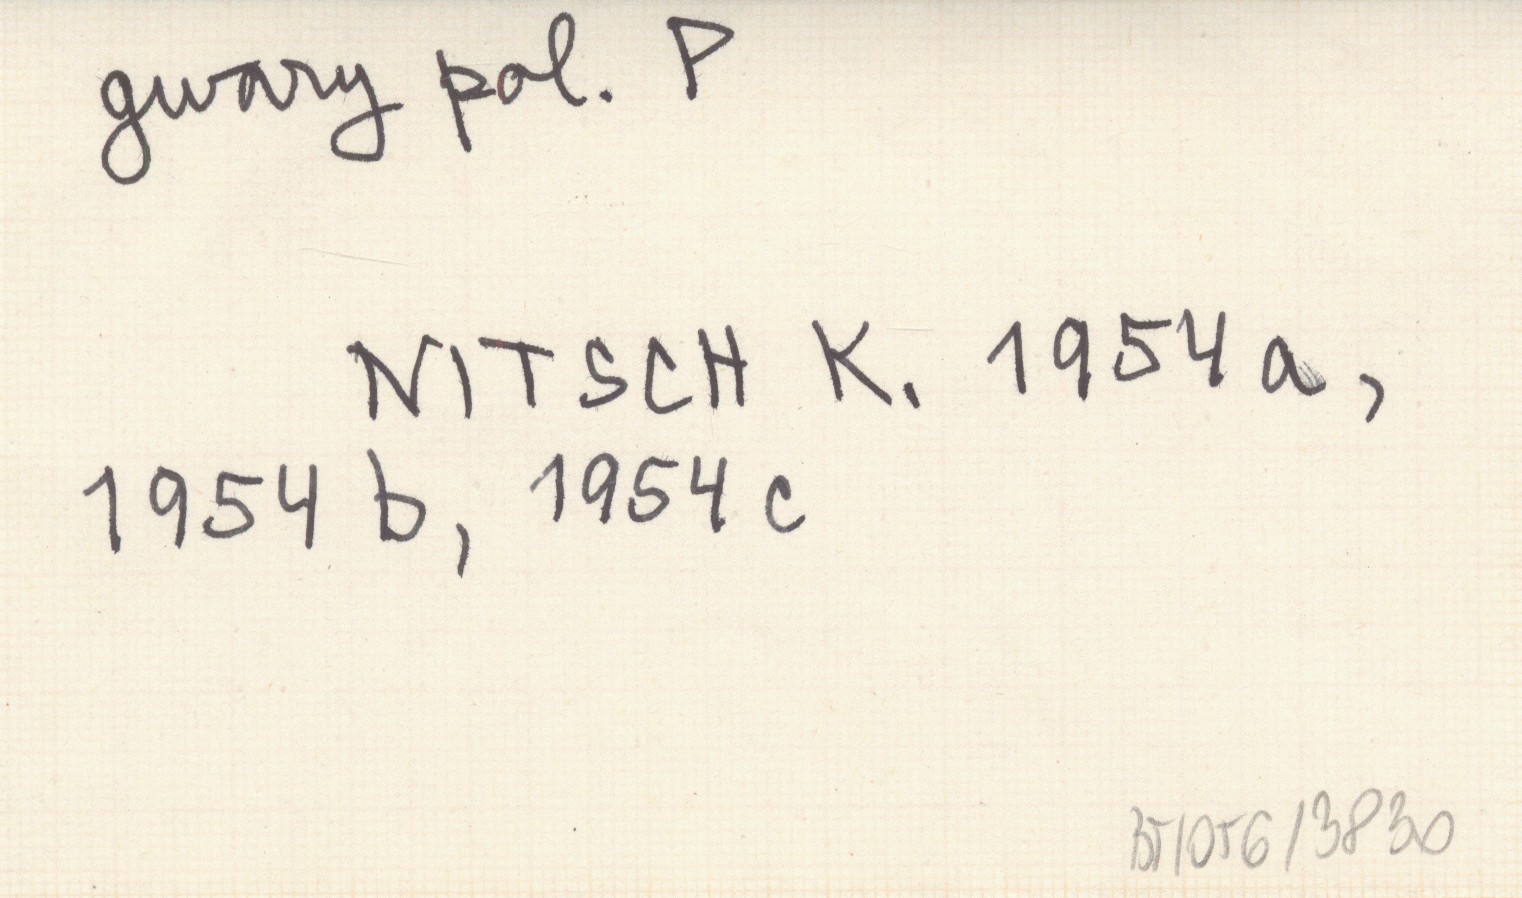 gwary pol. P
NITSCH K. 1954a,
1954b, 1954c
BT/OTG/3830